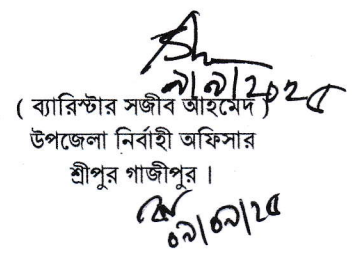 ৯/৯/২০২৫
( ব্যারিস্টার সজীব আহমেদ )
উপজেলা নির্বাহী অফিসার
শ্রীপুর গাজীপুর ।
০৯/০৯/২৫